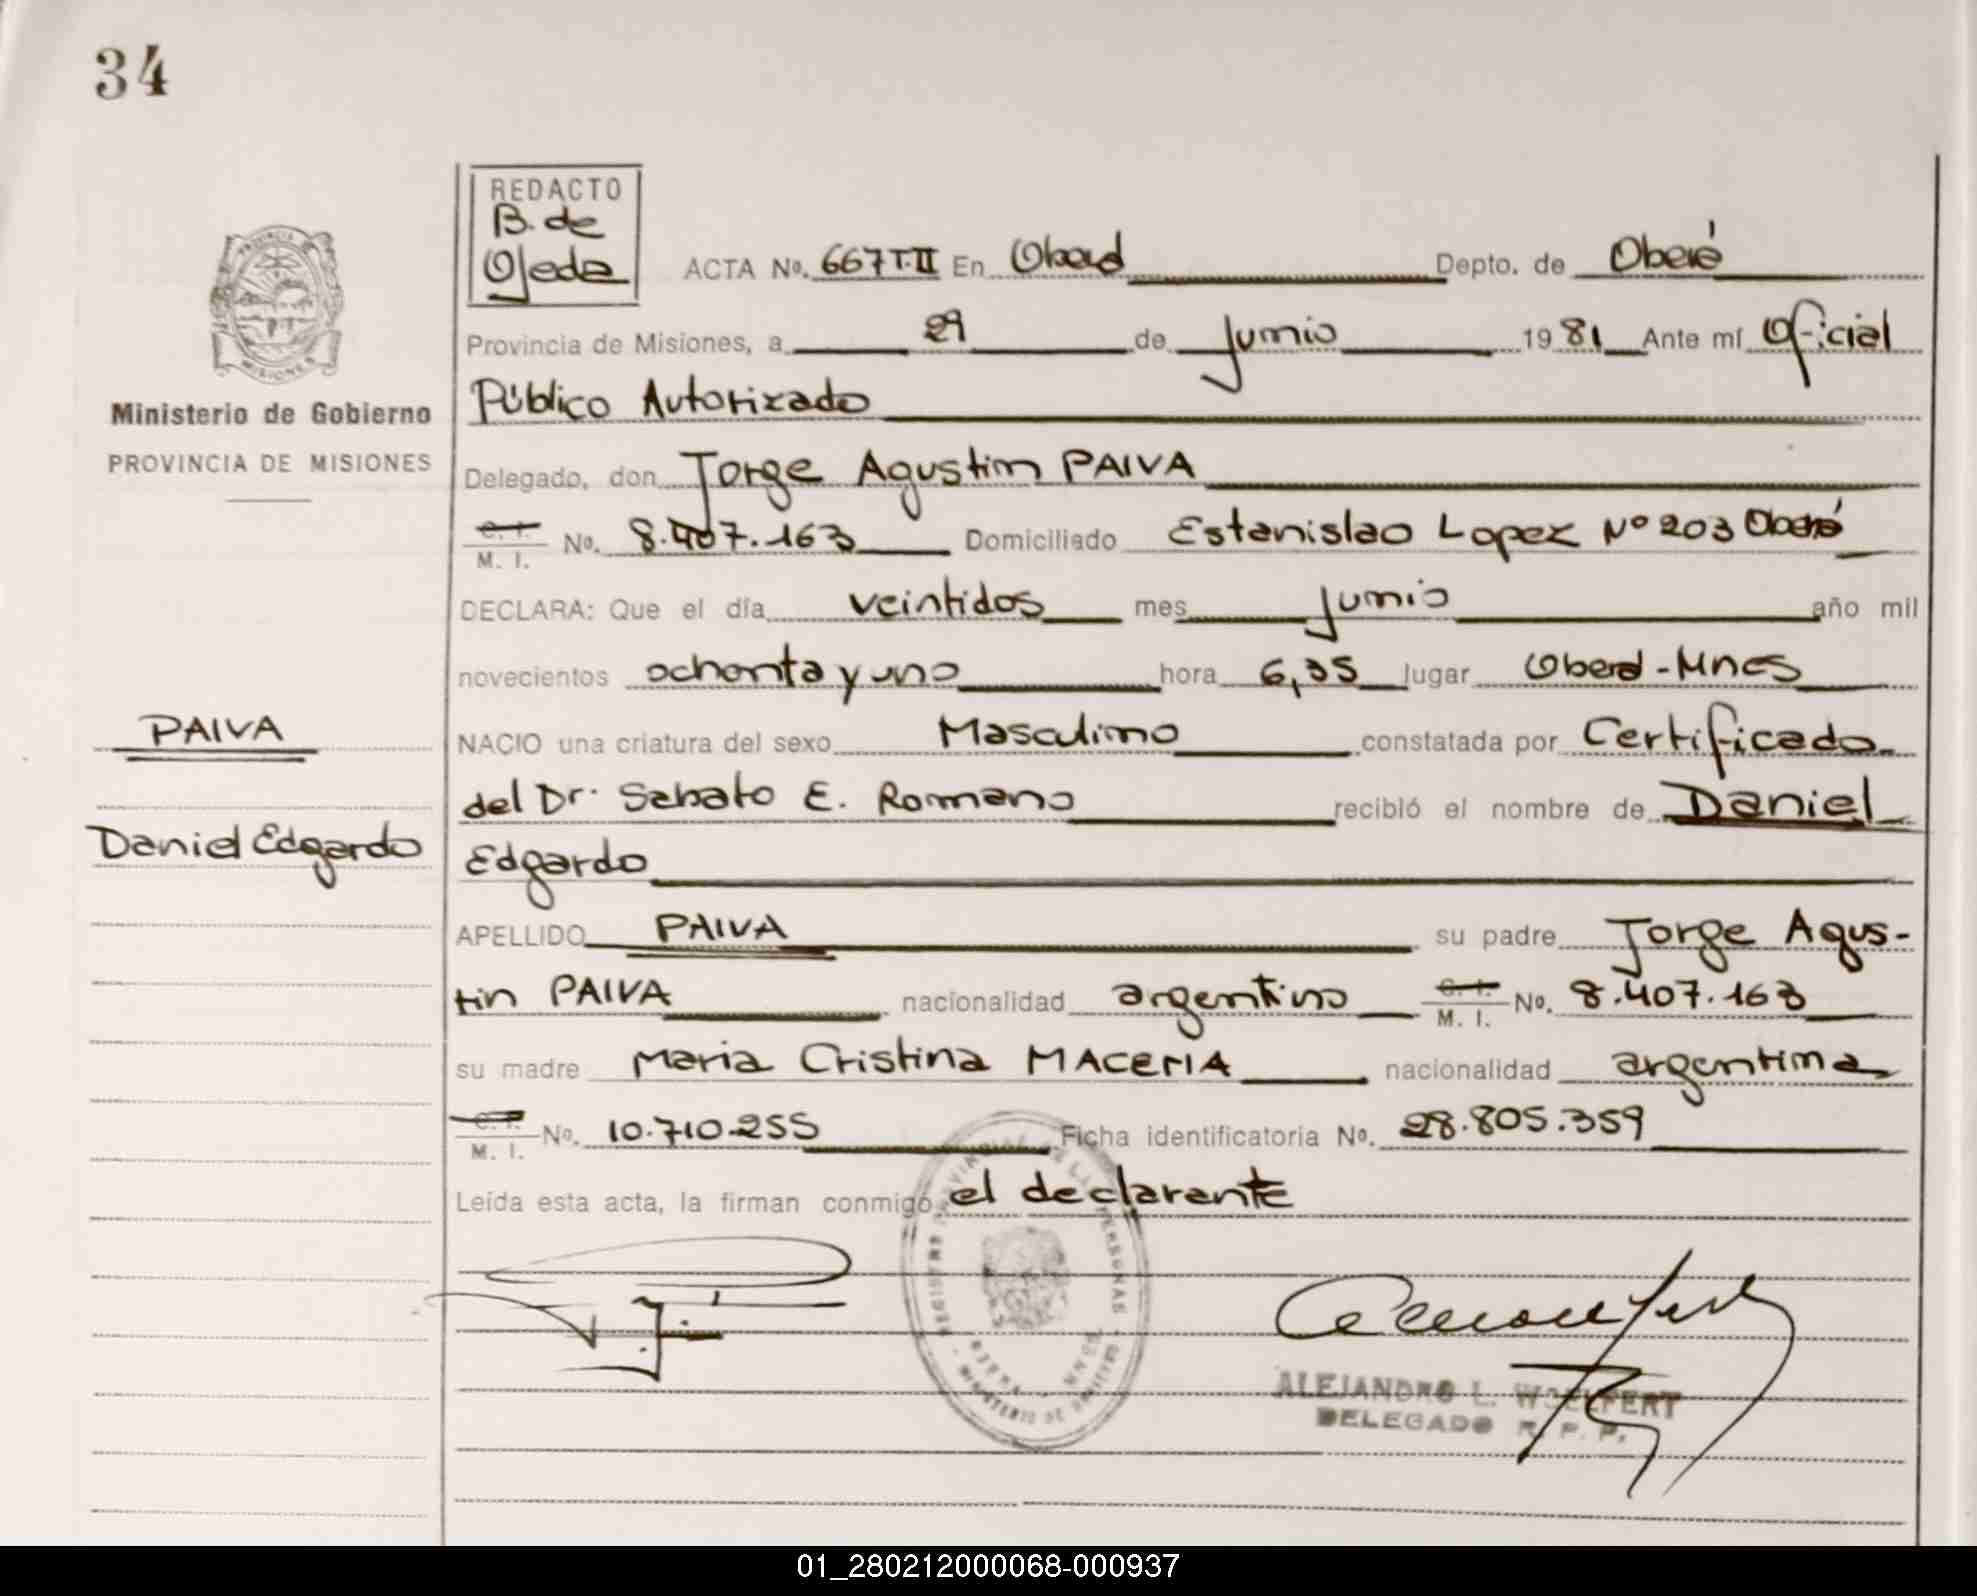 34
REDACTO
B. de
Ojeda
ACTA No. 667 T-II En Oberá Depto. de Oberá
Provincia de Misiones, a 29 de Junio 1981 Ante mí Oficial
Público Autorizado
Ministerio de Gobierno
PROVINCIA DE MISIONES
Delegado, don Jorge Agustin PAIVA
C. I.
M. I. No. 8.407.163 Domiciliado Estanislao Lopez Nº 203 Oberá
DECLARA: Que el día veintidos mes Junio año mil
novecientos ochenta y uno hora 6,35 lugar Oberá - Mnes
PAIVA
NACIO una criatura del sexo Masculino constatada por Certificado
del Dr. Sabato E. Romano recibió el nombre de Daniel
Daniel Edgardo
Edgardo
APELLIDO PAIVA su padre Jorge Agus-
tin PAIVA nacionalidad argentino C. I. M. I. No. 8.407.163
su madre Maria Cristina MACERIA nacionalidad argentina
C. I.
M. I. No. 10.710.255 Ficha identificatoria No. 28.805.359
Leída esta acta, la firman conmigo el declarante
REGISTRO PROVINCIAL DE LAS PERSONAS
ALEJANDRO L. WOELFERT
DELEGADO R. P. P.
01_280212000068-000937